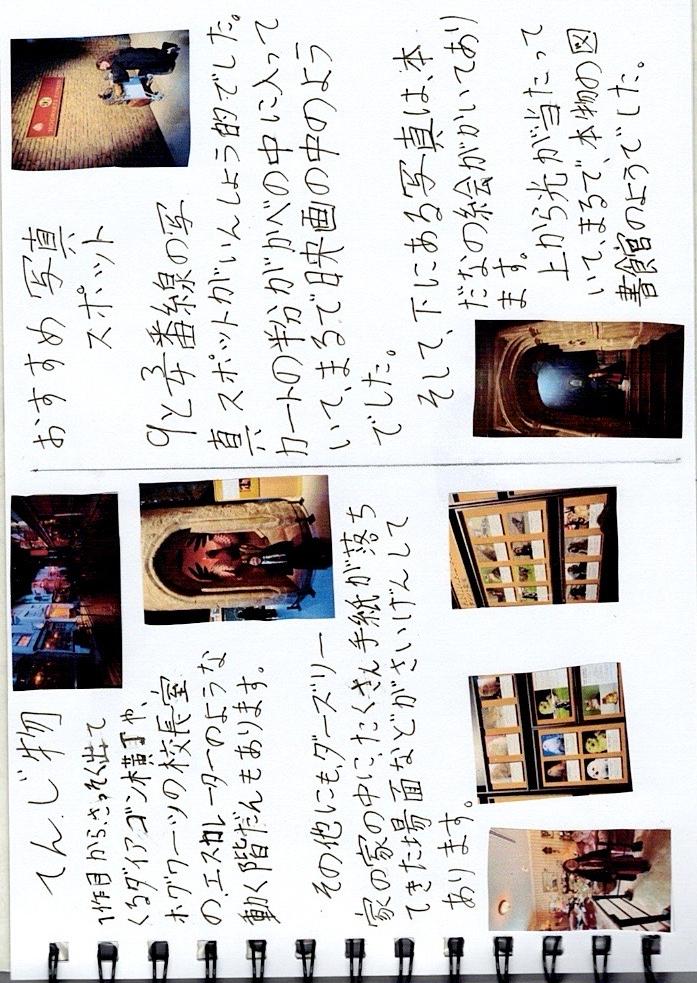 てんじ物
1作目から、さっそく出て
くるダイアゴン横丁や、
ホグワーツの校長室
の、エスカレーターのような
動く階だんもあります。
その他にも、ダーズリー
家の家の中に、たくさん手紙が落ち
てきた場面などがさいげんして
あります。
おすすめ写真
スポット
9と3/4番線の写
真スポットがいんしょう的でした。
カートの半分がかべの中に入って
いて、まるで映画の中のよう
でした。
そして、下にある写真は、本
だなの絵がかいてあり
ます。
上から光が当たって
いて、まるで、本物の図
書館のようでした。